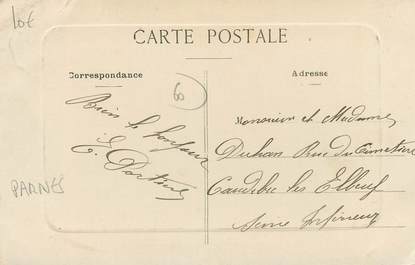 10€
CARTE POSTALE
Correspondance
Adresse
60
Bien le bonjour
E.
Monsieur et Madame
Duhan Rue du Cimetière
Caudebec les Elbeuf
Seine Inférieur
PARNES